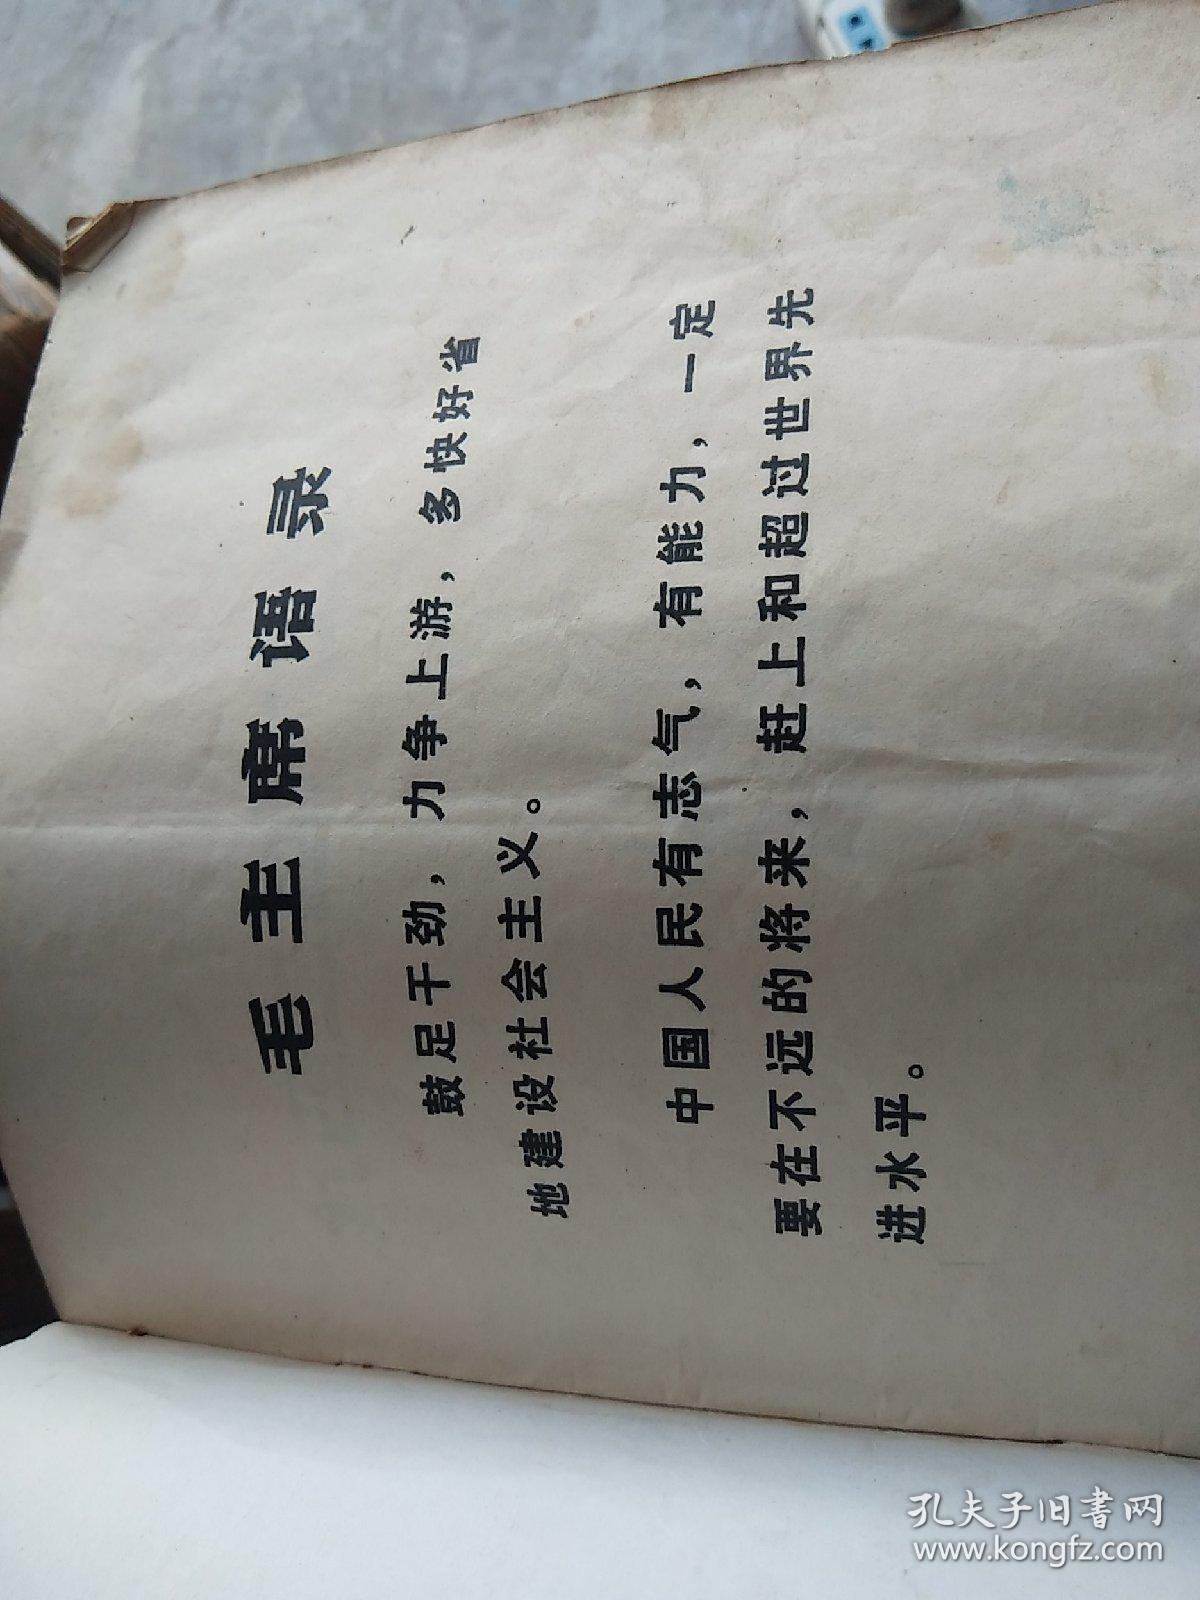 毛主席语录
鼓足干劲，力争上游，多快好省
地建设社会主义。
中国人民有志气，有能力，一定
要在不远的将来，赶上和超过世界先
进水平。
孔夫子旧书网
www.kongfz.com